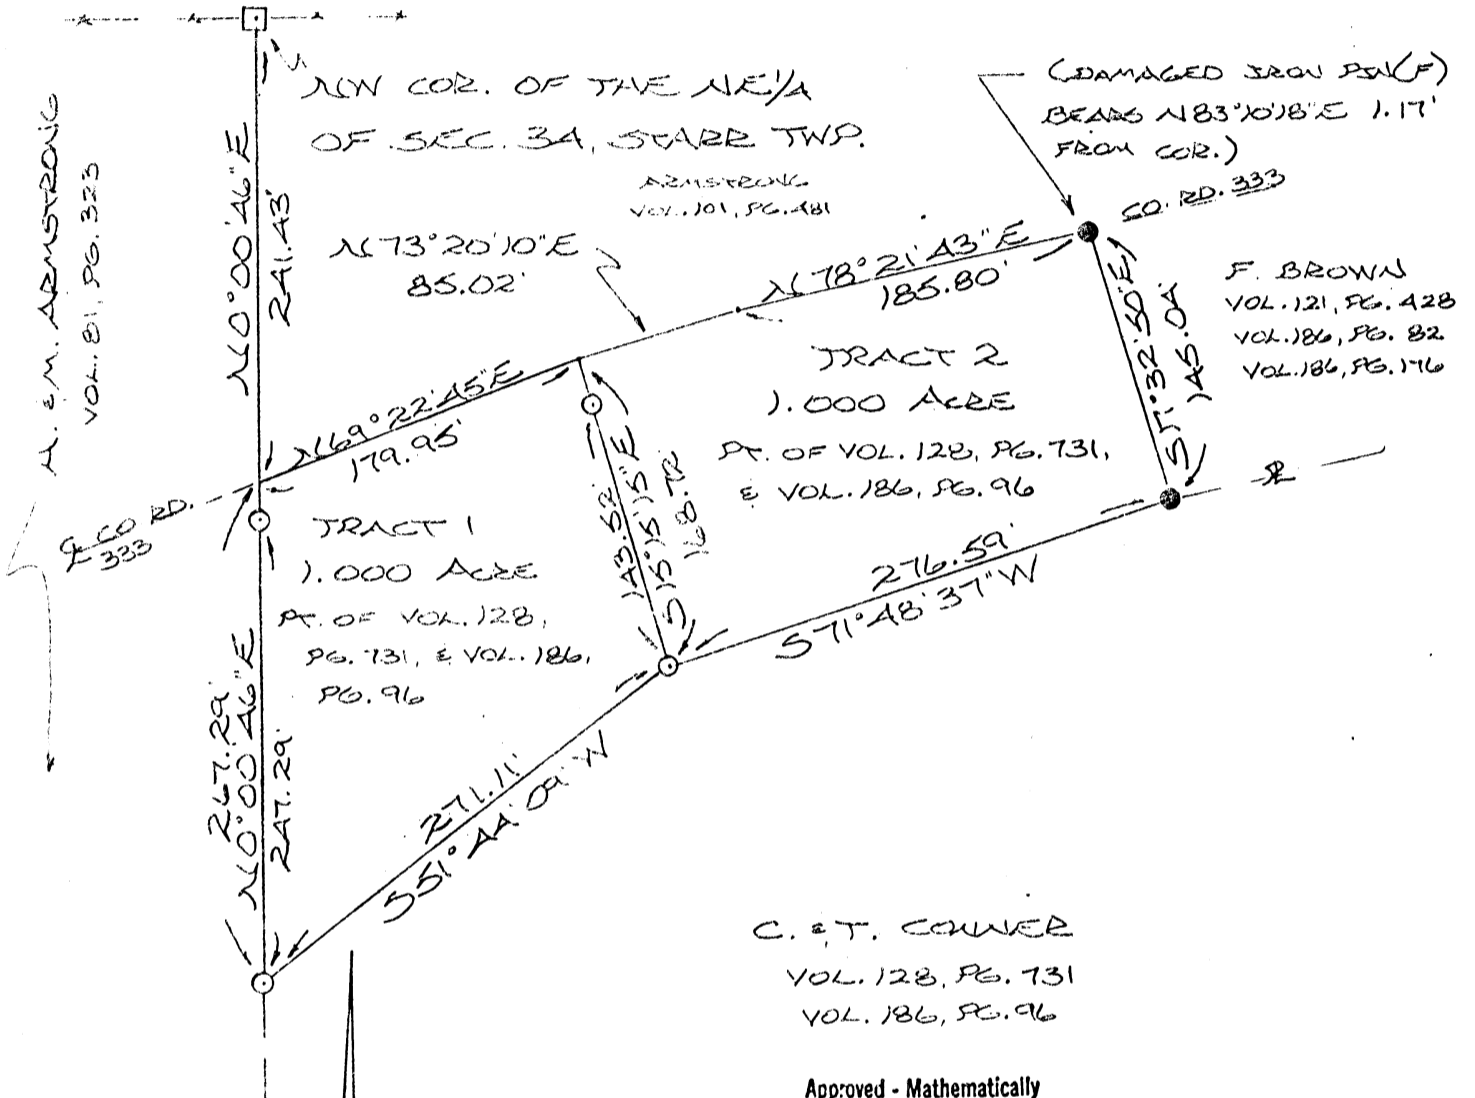 NW COR. OF THE NE1/4
OF SEC. 34, STARR TWP.
ARMSTRONG
VOL. 101, PG. 481
(DAMAGED IRON PIN(F)
BEARS N83°10'18"E 1.17'
FROM COR.)
CO. RD. 333
M. & M. ARMSTRONG
VOL. 81, PG. 323
N0°00'46"E
241.43'
N73°20'10"E
85.02'
N78°21'43"E
185.80'
F. BROWN
VOL. 121, PG. 428
VOL. 186, PG. 82
VOL. 186, PG. 176
S17°32'50"E
145.04'
N69°22'45"E
179.95'
TRACT 2
1.000 ACRE
PT. OF VOL. 128, PG. 731,
& VOL. 186, PG. 96
℄ CO RD.
333
TRACT 1
1.000 ACRE
PT. OF VOL. 128,
PG. 731, & VOL. 186,
PG. 96
143.52'
S15°15'15"E
168.72'
276.59'
S71°48'37"W
267.29'
N0°00'46"E
247.29'
271.11'
S51°44'09"W
C. & T. CONNER
VOL. 128, PG. 731
VOL. 186, PG. 96
Approved - Mathematically